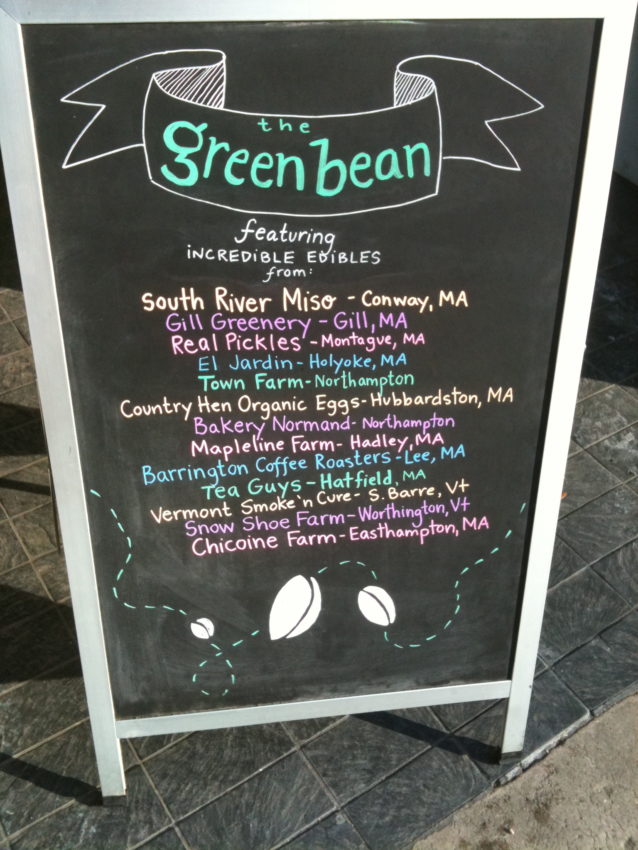 the
green bean
featuring
iNCREDiBLE EDiBLES
from:
South River Miso - Conway, MA
Gill Greenery - Gill, MA
Real Pickles - Montague, MA
El Jardin - Holyoke, MA
Town Farm - Northampton
Country Hen Organic Eggs - Hubbardston, MA
Bakery Normand - Northampton
Mapleline Farm - Hadley, MA
Barrington Coffee Roasters - Lee, MA
Tea Guys - Hatfield, MA
Vermont Smoke 'n Cure - S. Barre, Vt
Snow Shoe Farm - Worthington, Vt
Chicoine Farm - Easthampton, MA